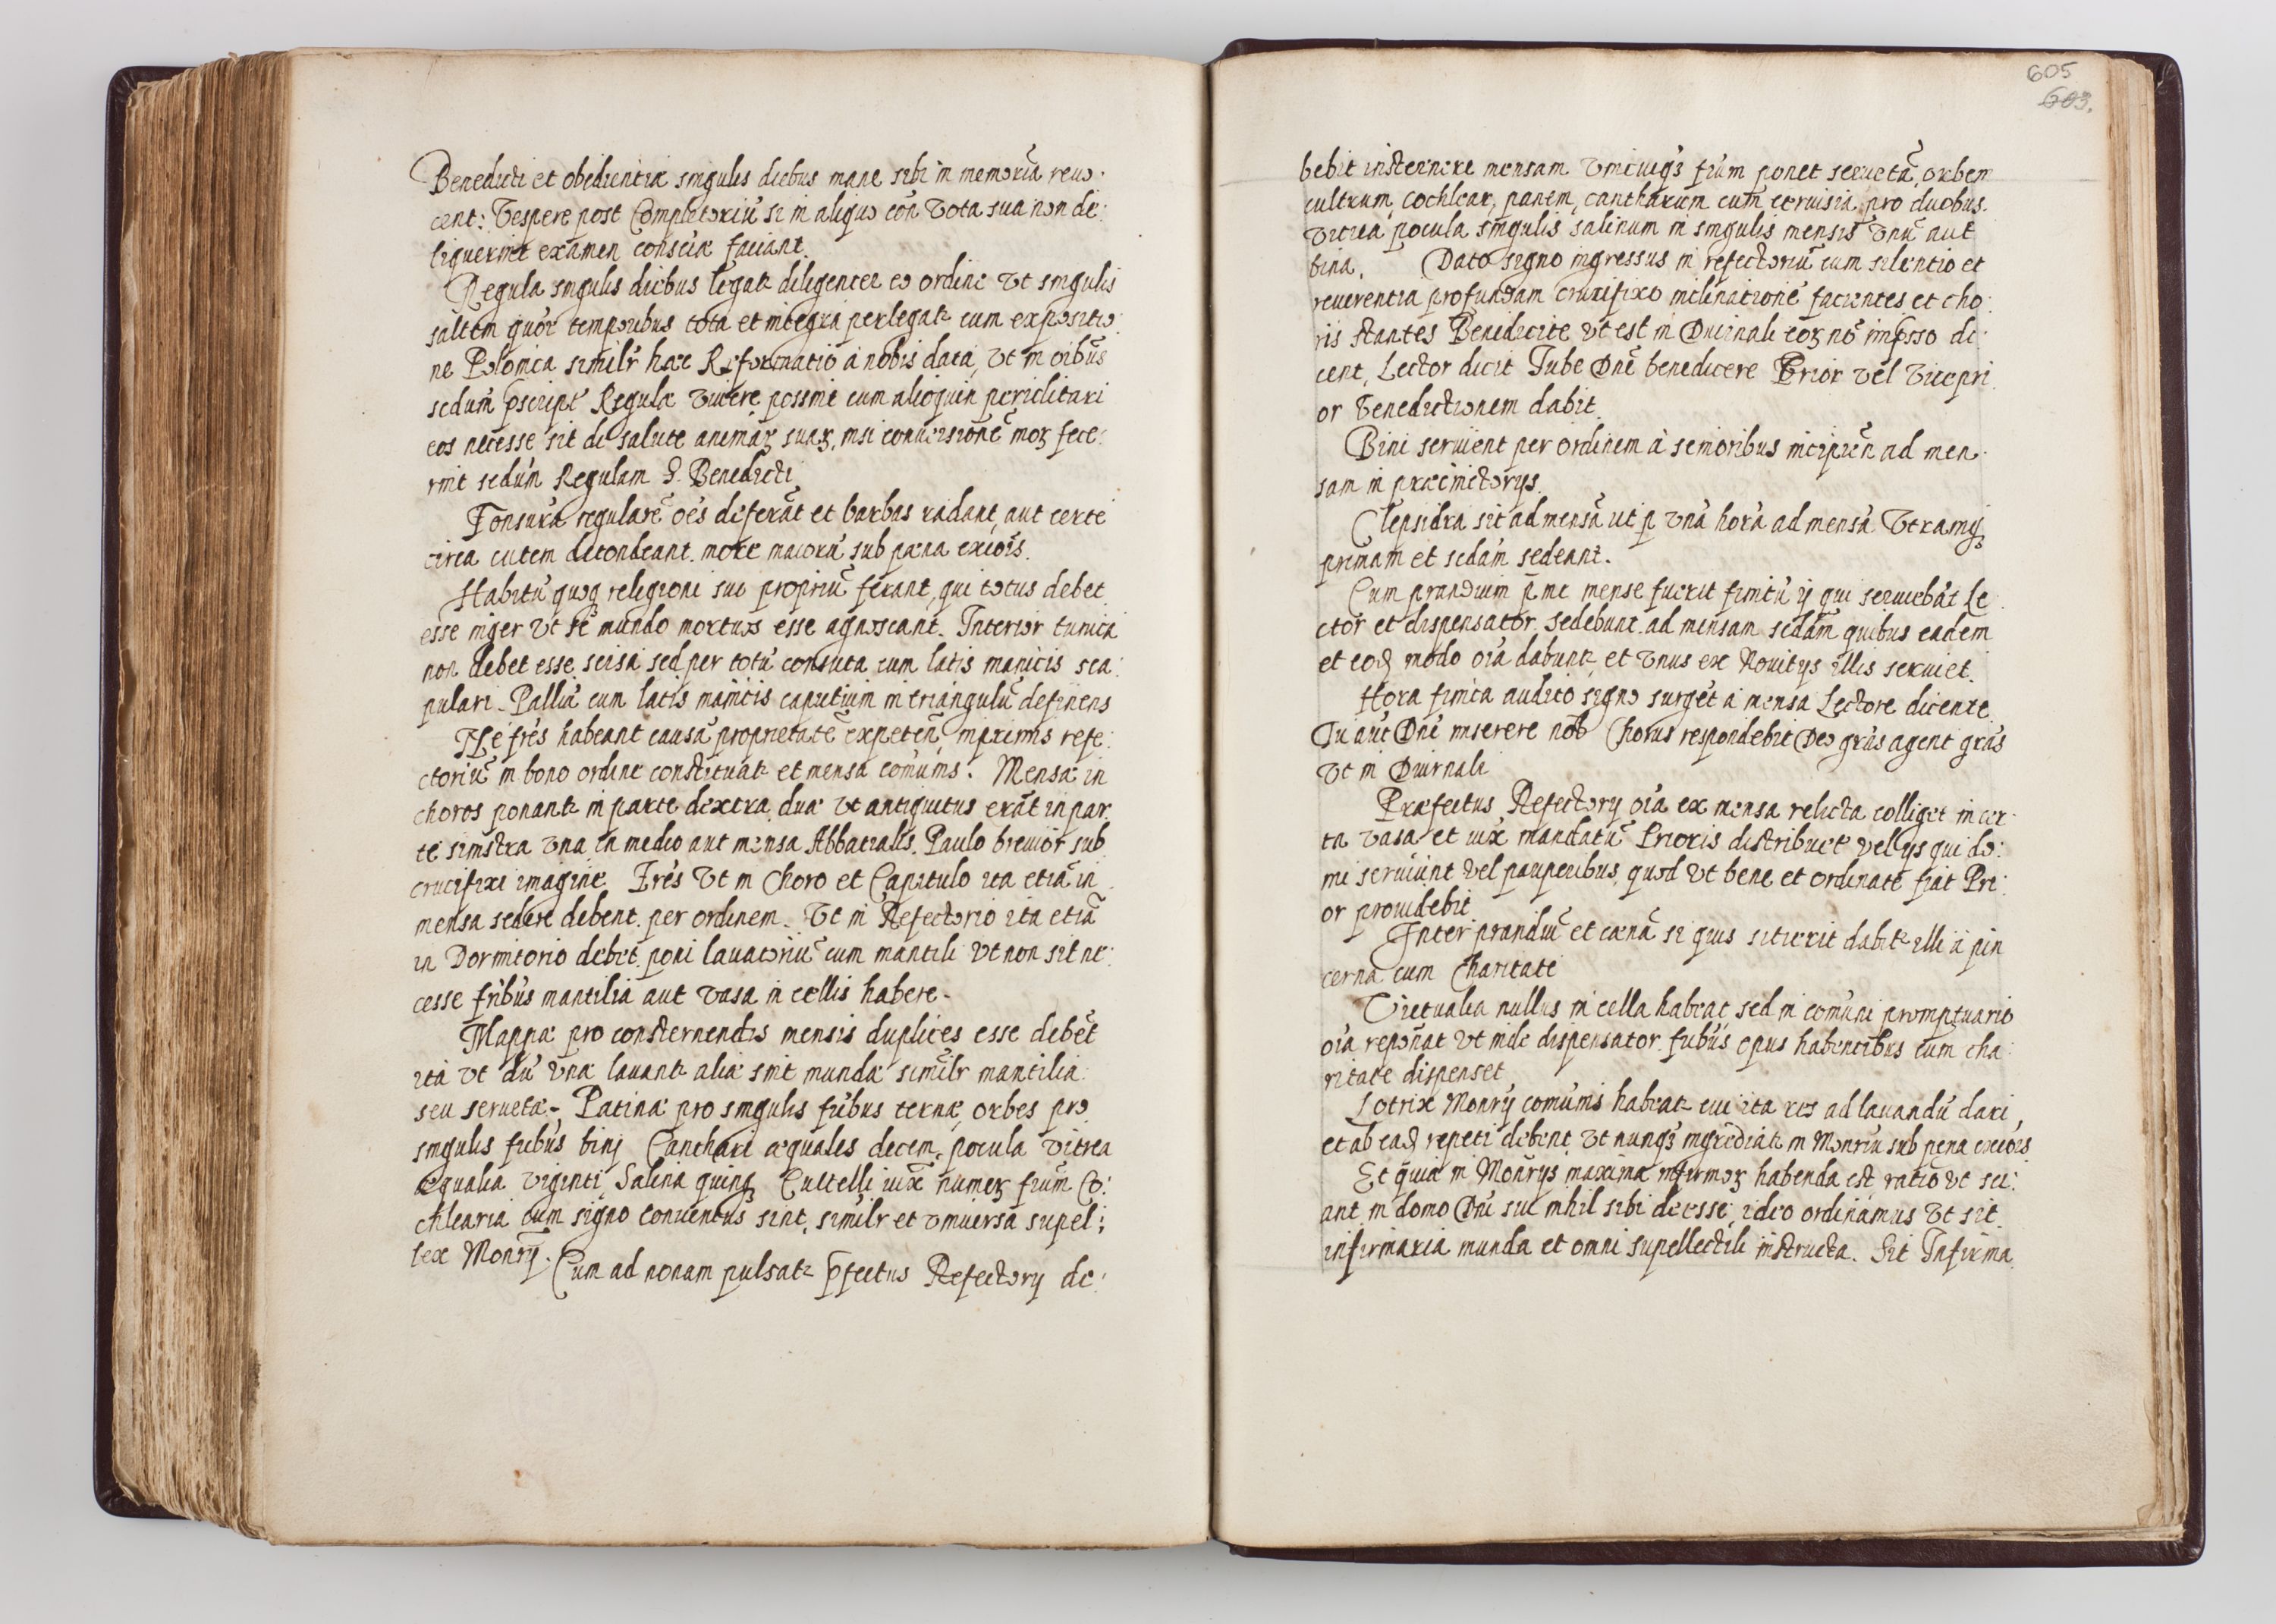 Benedicti et obedientiæ singulis diebus mane sibi in memoriã revo:
cent: Vespere post Completoriũ si in aliquo cõn Vota sua non de:
liquerint examen consciæ faciant.
Regula singulis diebus legatr diligenter eo ordine vt singulis
saltem quor temporibus tota et integra perlegatr cum expositio:
ne Polonica similr hæc Reformatio a nobis data, vt in oibus
sedum pscript Regulæ viuere possint cum alioquin periclitari
eos necesse sit de salute animaꝝ suaꝝ, nisi conuersionẽ moꝝ fece:
rint sedum Regulam S. Benedicti
Tonsurã regularẽ oẽs deferãt et barbas radant, aut certe
circa cutem detondeant more maiorũ sub pæna excõis.
Habitũ quoqꝫ religioni suo propriũ ferant, qui totus debet
esse niger vt se mundo mortuos esse agnoscant. Interior tunica
non debet esse scisa sed per totũ consuta cum latis manicis sca:
pulari. Palliũ cum latis manicis caputium in triangulũ desinens
Ne frẽs habeant causã proprietatẽ expetẽn, inprimis refe:
ctoriũ in bono ordine constituatr et mensa comunis. Mensæ in
choros ponantr in parte dextra duæ vt antiquitus erãt in par
te sinistra vna in medio aut mensa Abbatialis. Paulo breuior sub
crucifixi imagine. Frẽs vt in Choro et Capitulo ita etiã in
mensa sedere debent per ordinem. Vt in Refectorio ita etiã
in Dormitorio debet poni lauatoriũ cum mantili vt non sit ne:
cesse fribus mantilia aut vasa in cellis habere.
Mappæ pro consternendis mensis duplices esse debẽt
ita vt dũ vnæ lauantr aliæ sint mundæ similr mantilia
seu seruetæ. Patinæ pro singulis fribus ternæ, orbes pro
singulis fribus binj Canthari æquales decem, pocula vitrea
æqualia viginti, Salina quinqꝫ Cultelli iuxã numeꝝ frum Co:
chlearia cum signo conuentus sint, similr et vniuersa supel:
lex Monrij. Cum ad nonam pulsatr pfectus Refectorij de:
605
603.
bebit insternere mensam vnicuiqꝫ frum ponet seruetã, orbem
cultrum, cochlear, panem, cantharum cum ceruisia pro duobus.
vitrea pocula singulis salinum in singulis mensis vnũ aut
bina. Dato signo ingressus in refectoriũ cum silentio et
reuerentia profundam crucifixo inclinationẽ facientes et cho:
ris stantes Benedicite vt est in Diurnali eoꝝ nõ impsso di:
cent, Lector dicit Jube Dne benedicere Prior vel Vicepri
or Benedictionem dabit.
Bini seruient per ordinem à senioribus incipiẽn ad men:
sam in præcinctorijs.
Clepsidra sit ad mensã ut p vnã horã ad mensã Vtramqꝫ
primam et sedam sedeant.
Cum prandium pmæ mensæ fuerit finitũ ij qui seruiebãt Le
ctor et dispensator sedebunt ad mensam sedam quibus eadem
et eod modo oia dabuntr et vnus ex Nouitijs illis seruiet.
Hora finita audito signo surgẽt a mensa Lectore dicente
Tu aut Dne miserere nob Chorus respondebit Deo gras agent gras
vt in Diurnali
Præfectus Refectorij oia ex mensa relicta colliget in cer
ta vasa et iux mandatũ Prioris distribuet vel ijs qui do:
mi seruiunt vel pauperibus, quod vt bene et ordinatẽ fiat Pri:
or prouidebit
Inter prandiũ et cænã si quis sitierit dabitr illi à pin
cerna cum Charitate
Victualia nullus in cella habeat sed in comuni promptuario
oia reponãt vt inde dispensator fribus opus habentibus cum cha:
ritate dispenset
Lotrix Monrij comunis habeatr cui ita res ad lauandũ dari,
et ab ead repeti debent, vt nunqꝫ ingrediatr in Monriũ sub pena excõis
Et quia in Monrijs maxima infirmoꝝ habenda est ratio vt sci:
ant in domo Dni sui nihil sibi deesse, ideo ordinamus vt sit
infirmaria munda et omni supellectili instructa. Sit Infirma